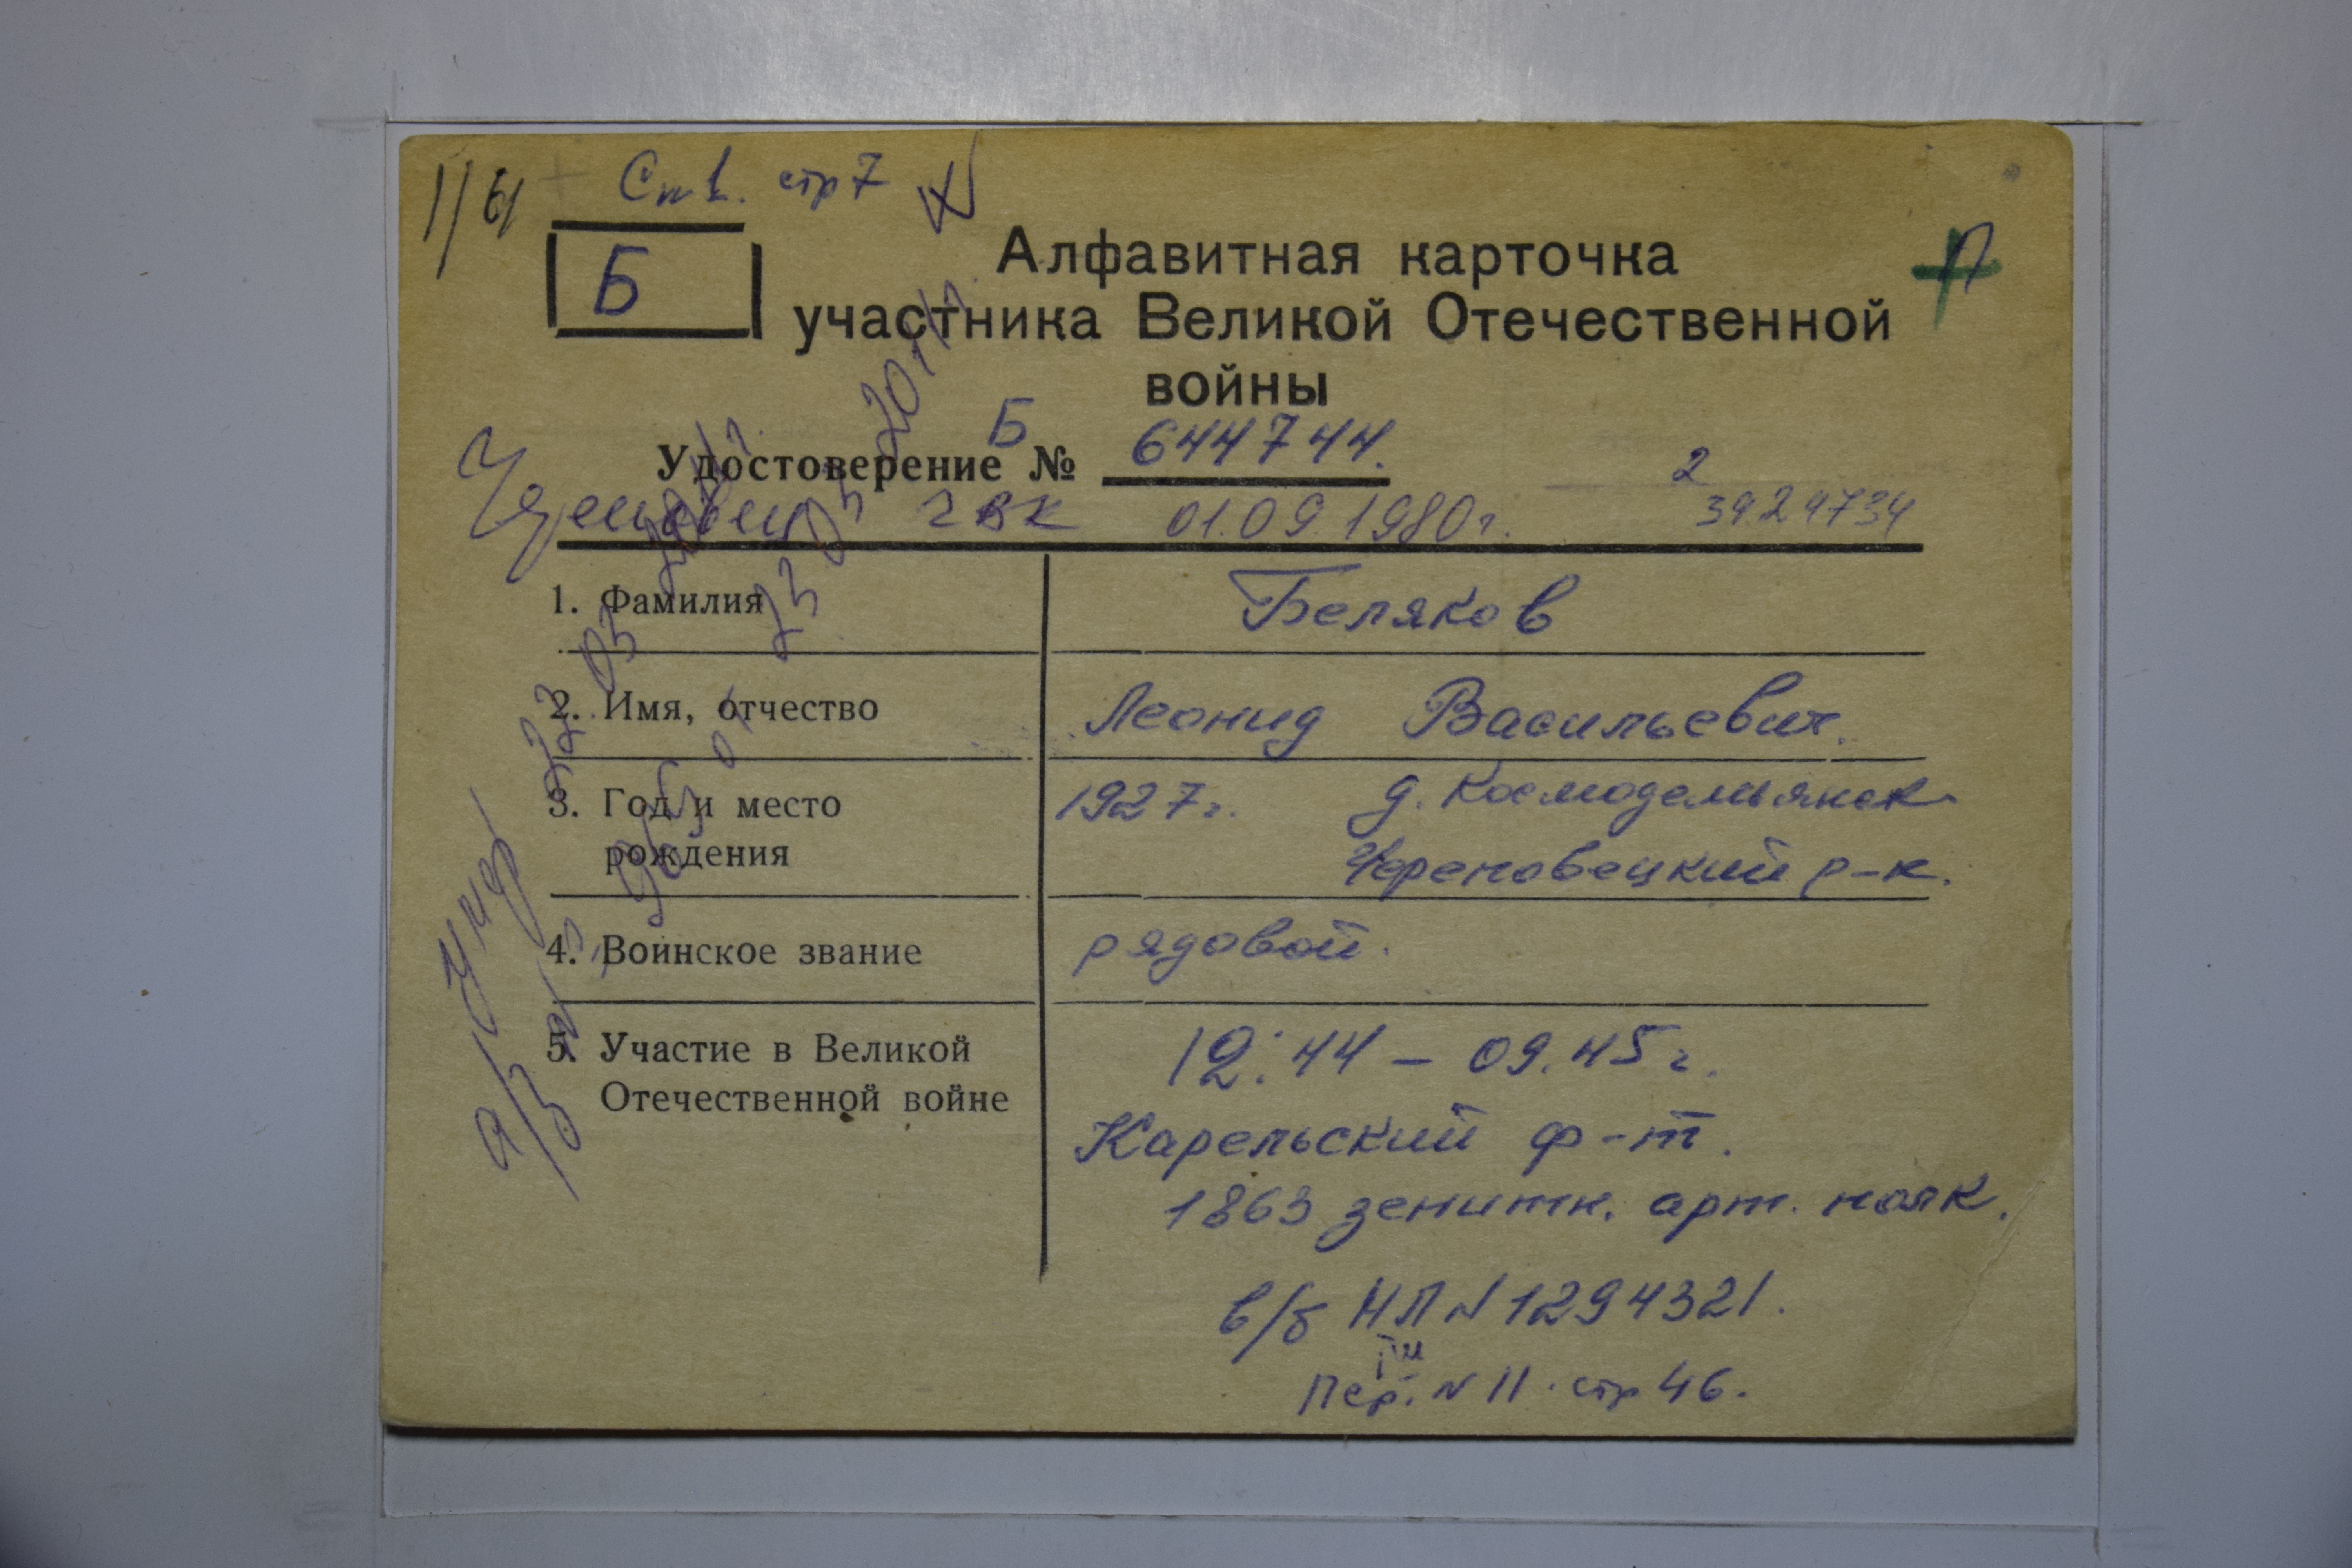 1/61 Сп 1. стр 7
Б
Алфавитная карточка
участника Великой Отечественной
войны
Удостоверение Б № 644744.
2
Череповец ГВК 01.09.1980г. 3929734
1. Фамилия Беляков
2. Имя, отчество Леонид Васильевич.
3. Год и место рождения 1927г. д. Космодемьянск
Череповецкий р-н.
4. Воинское звание рядовой.
5. Участие в Великой Отечественной войне 12.44 – 09.45г.
Карельский ф-т.
1863 зенитн. арт. полк.
в/б НП N 1294321.
Пер. N 11. стр 46.
Умер